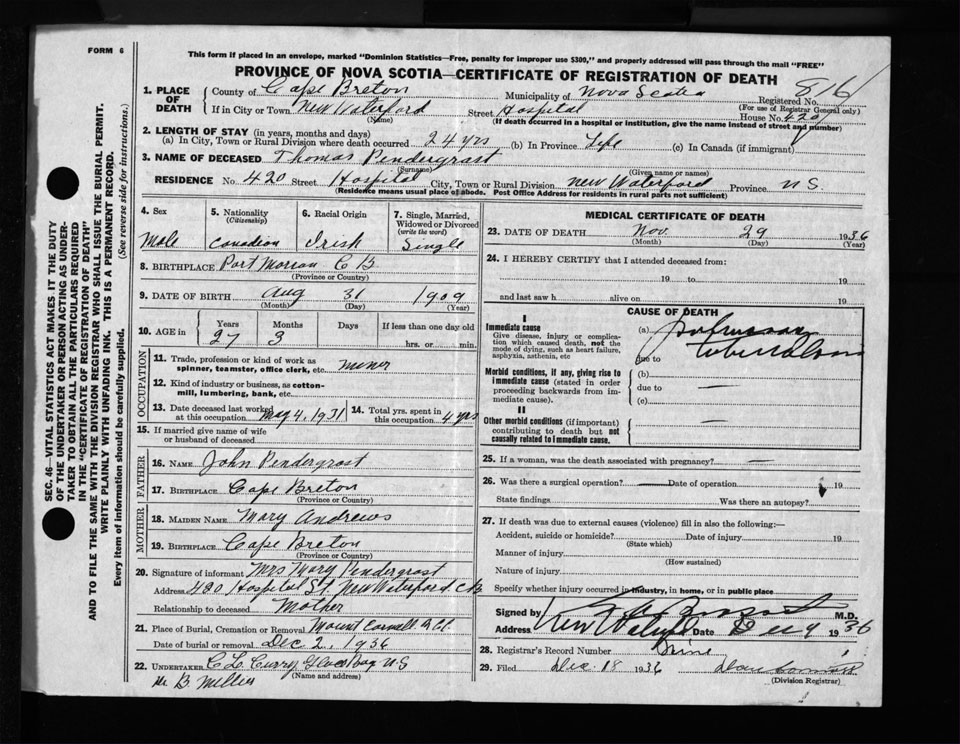 FORM 6
This form if placed in an envelope, marked "Dominion Statistics—Free, penalty for improper use $300," and properly addressed will pass through the mail "FREE"
PROVINCE OF NOVA SCOTIA—CERTIFICATE OF REGISTRATION OF DEATH
816
1. PLACE OF DEATH
County of Cape Breton Municipality of Nova Scotia Registered No.
(For use of Registrar General only)
If in City or Town New Waterford Street Hospital House No. 420
(Name) (If death occurred in a hospital or institution, give the name instead of street and number)
2. LENGTH OF STAY (in years, months and days)
(a) In City, Town or Rural Division where death occurred 24 yrs (b) In Province Life (c) In Canada (if immigrant)
3. NAME OF DECEASED Thomas Pendergrast
(Surname) (Given name or names)
RESIDENCE No. 420 Street Hospital City, Town or Rural Division New Waterford Province N S.
(Residence means usual place of abode. Post Office Address for residents in rural parts not sufficient)
4. Sex 5. Nationality (Citizenship) 6. Racial Origin 7. Single, Married, Widowed or Divorced (write the word)
Male Canadian Irish Single
8. BIRTHPLACE Port Morien C B
(Province or Country)
9. DATE OF BIRTH Aug 31 1909
(Month) (Day) (Year)
10. AGE in Years Months Days If less than one day old
27 3 hrs. or min.
OCCUPATION
11. Trade, profession or kind of work as spinner, teamster, office clerk, etc. Miner
12. Kind of industry or business, as cotton-mill, lumbering, bank, etc.
13. Date deceased last worked at this occupation May 4, 1931 14. Total yrs. spent in this occupation 4 yrs
15. If married give name of wife or husband of deceased
FATHER
16. NAME John Pendergrast
17. BIRTHPLACE Cape Breton
(Province or Country)
MOTHER
18. MAIDEN NAME Mary Andrews
19. BIRTHPLACE Cape Breton
(Province or Country)
20. Signature of informant Mrs Mary Pendergrast
Address 420 Hospital St New Waterford C.B
Relationship to deceased Mother
21. Place of Burial, Cremation or Removal Mount Carmell
Date of burial or removal Dec 2, 1936
22. UNDERTAKER C L Curry Glace Bay N S
(Name and address)
MEDICAL CERTIFICATE OF DEATH
23. DATE OF DEATH Nov. 29 1936
(Month) (Day) (Year)
24. I HEREBY CERTIFY that I attended deceased from:
19 to 19
and last saw h alive on 19
CAUSE OF DEATH
I
Immediate cause
Give disease, injury or complication which caused death, not the mode of dying, such as heart failure, asphyxia, asthenia, etc
(a) Pulmonary
due to Tuberculosis
Morbid conditions, if any, giving rise to immediate cause (stated in order proceeding backwards from immediate cause).
(b)
due to —
(c)
II
Other morbid conditions (if important) contributing to death but not causally related to immediate cause. —
25. If a woman, was the death associated with pregnancy? —
26. Was there a surgical operation? — Date of operation 19
State findings Was there an autopsy?
27. If death was due to external causes (violence) fill in also the following:—
Accident, suicide or homicide? Date of injury 19
(State which)
Manner of injury
(How sustained)
Nature of injury
Specify whether injury occurred in industry, in home, or in public place
Signed by M.D.
Address New Waterford Date 9 1936
28. Registrar's Record Number Nine
29. Filed Dec. 18 1936
(Division Registrar)
SEC. 46—VITAL STATISTICS ACT MAKES IT THE DUTY
OF THE UNDERTAKER OR PERSON ACTING AS UNDER-
TAKER TO OBTAIN ALL THE PARTICULARS REQUIRED
IN THE "CERTIFICATE OF REGISTRATION OF DEATH"
AND TO FILE THE SAME WITH THE DIVISION REGISTRAR WHO SHALL ISSUE THE BURIAL PERMIT.
WRITE PLAINLY WITH UNFADING INK. THIS IS A PERMANENT RECORD.
Every item of information should be carefully supplied. (See reverse side for instructions.)